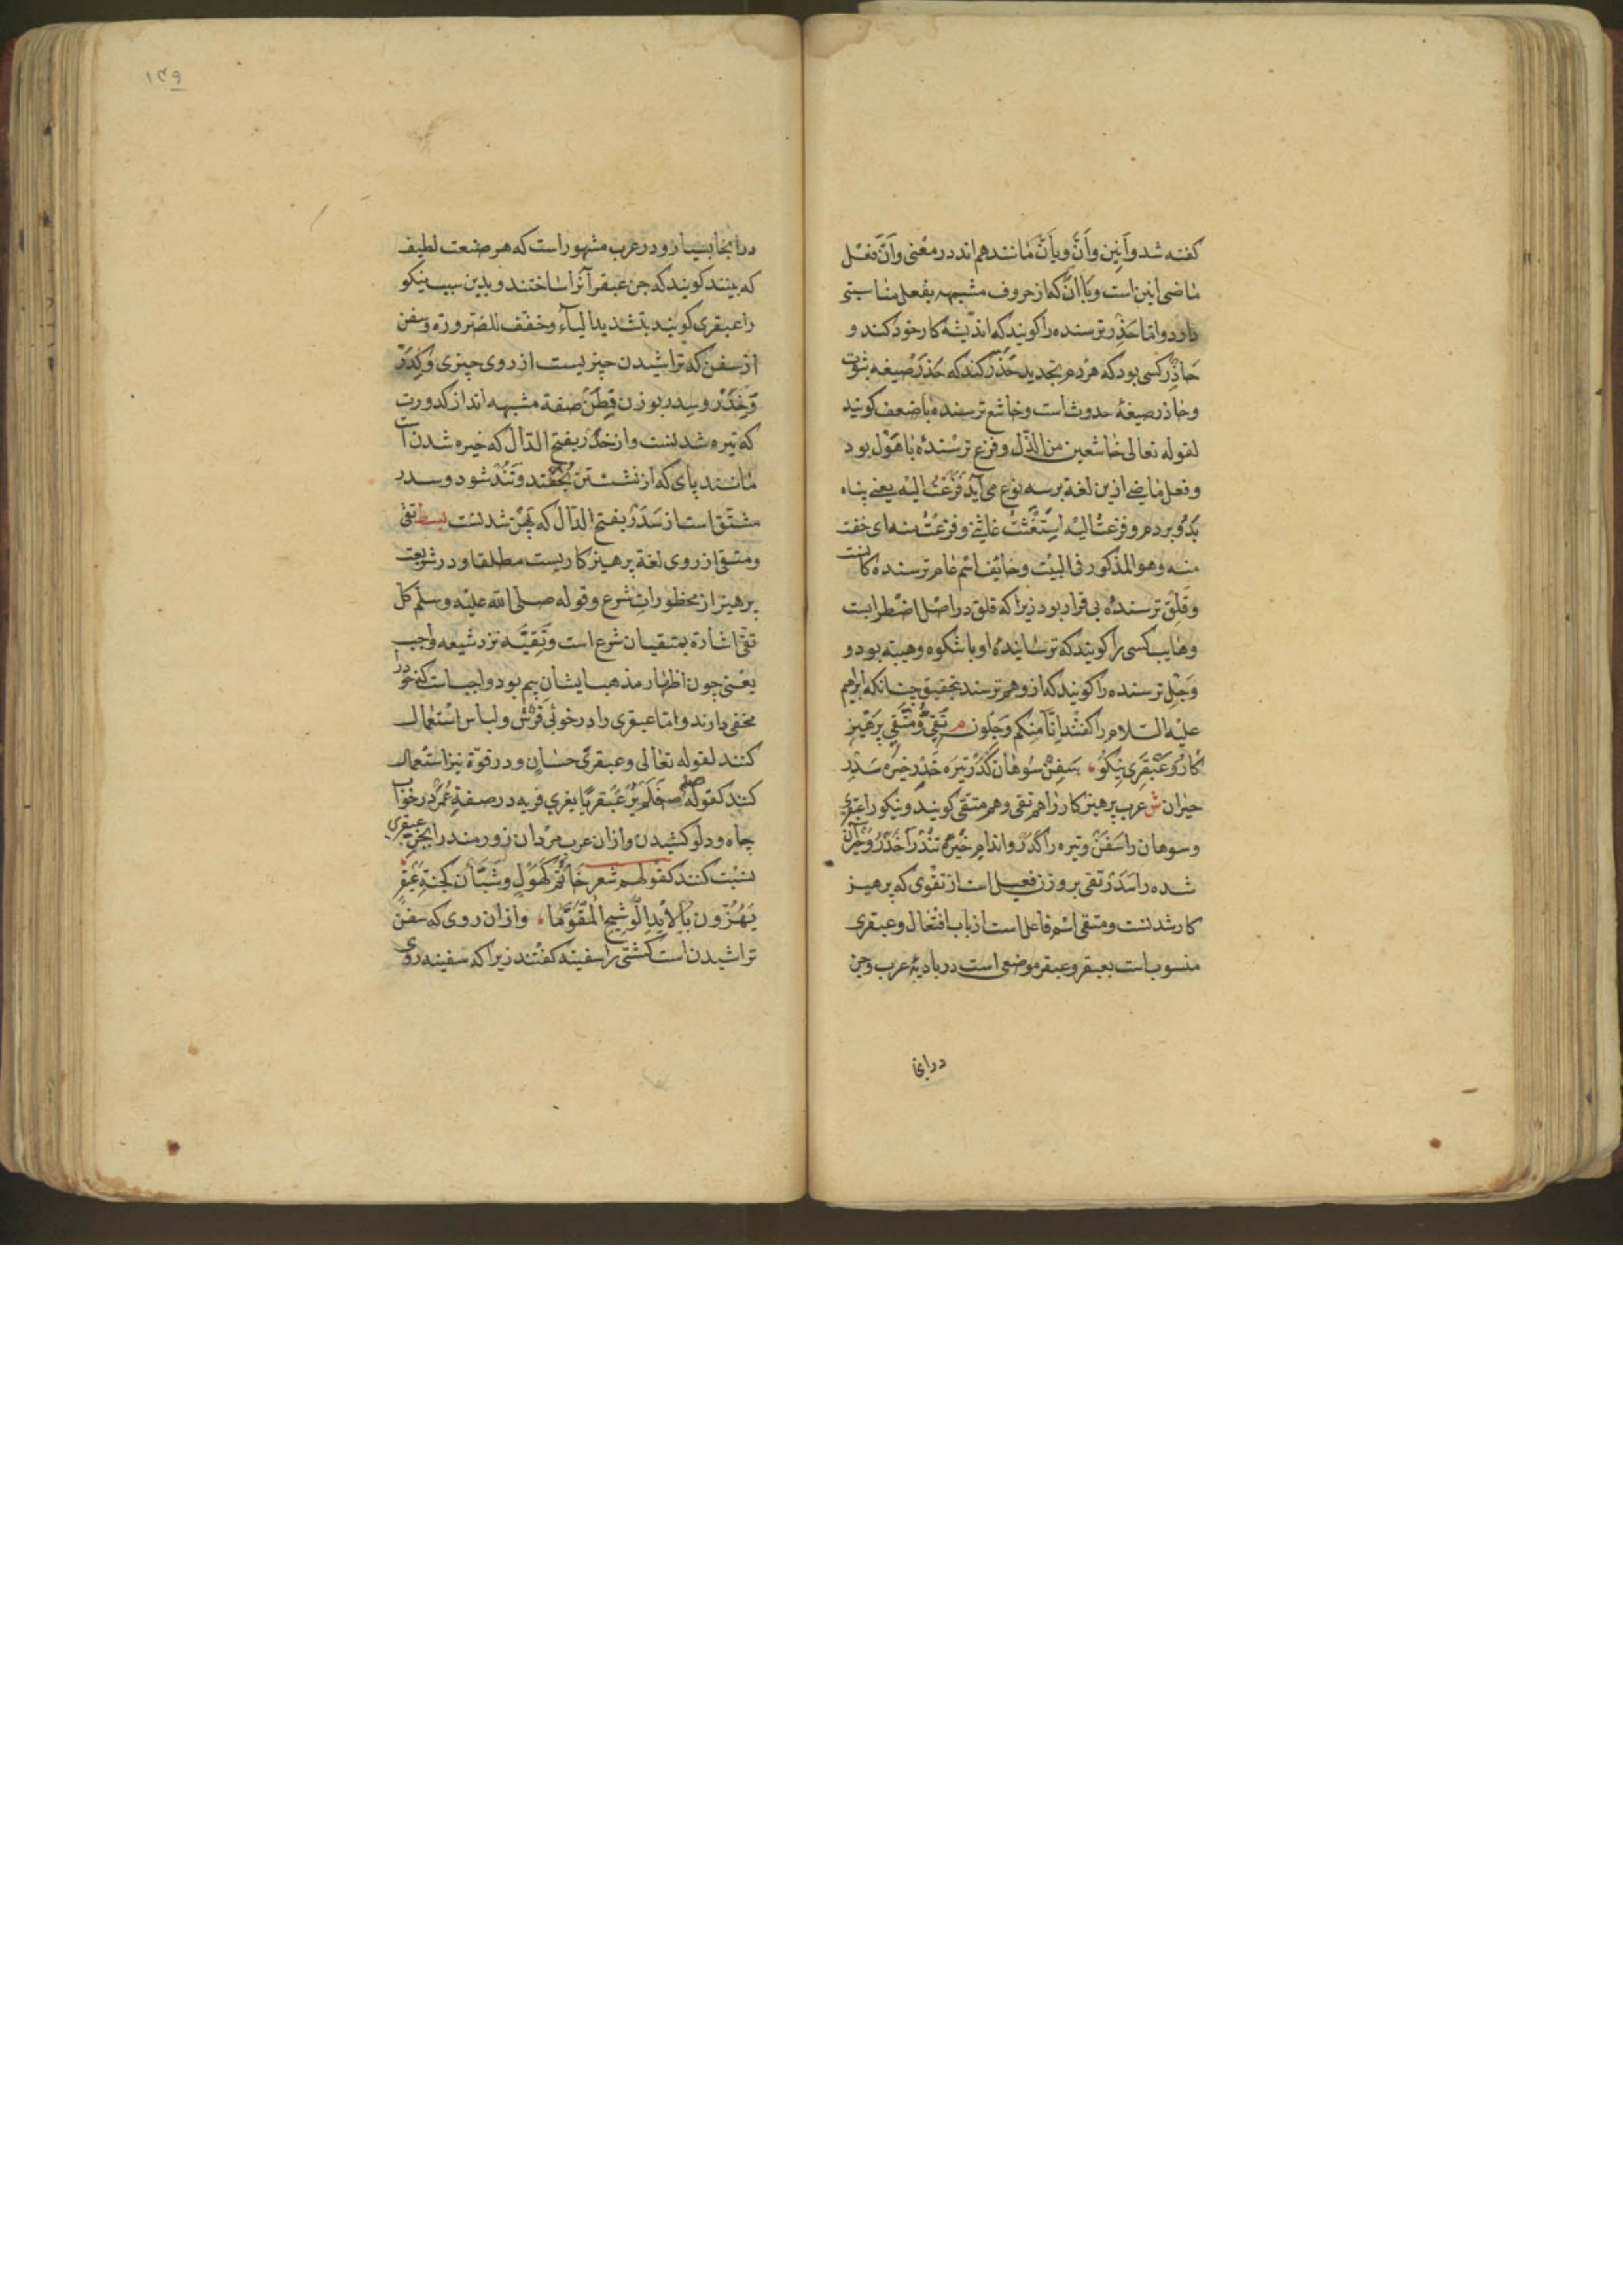 گفته شد و اَنین و اَنَّ و بِاَنَّ مانند هم‌اند در معنی و اَنَّ فعل
ماضی انین است و با اِنَّ که از حروف مشبهه بفعل مناسبتی
دارد و اما حَذِر ترسنده را کویند که اندیشهٔ کار خود کند و
حاذِر کسی بود که هر دم بتجدید حَذَر کند که حَذِر صیغه ثبوت
و حاذر صیغهٔ حدوث است و خاشع ترسندهٔ با ضعف کویند
لقوله تعالی خاشعین من الذّل و فزع ترسندهٔ با هَوْل بود
و فعل ماضی ازین لغة بر سه نوع می آید فَزَعْتُ الیْه یعنی پناه
بدو بردم و فزعتُ الیه استغثتُ غاثنی و فزعتُ منه ای خفت
منه و هو المذکور فی البیْت و خایف اسْم عام ترسنده کانست
و قَلِق ترسندهٔ بی قرار بود زیرا که قلق در اصْل اضْطرابست
و هایب کسی را کویند که ترسانیدهٔ او با شکوه و هیبة بود و
وَجِل ترسنده را کویند که از وهم ترسد بتحقیق چنانکه ابرهیم
علیْه السّلام را کفتند اِنّا مِنکم وَجلون م تَقی و مُتَّقی پَرهیز
کار و عَبْقَری نیکو سَفِنْ سوهان کَدِر تیره خَدِر خیره سَدِر
حیران ش عرب پرهیز کار را هم تقی و هم متقی کویند و نیکو را عبقری
و سوهان را سَفَنْ و تیره را کَدِر و اندام خیره تند را خَدِر و حیران
شده را سَدِر تقی بر وزن فعیل است از تقوی که پرهیز
کار شدنست و متقی اسْم فاعل است از باب افتعال و عبقری
منسوب است بعبقر و عبقر موضعی است در بادیهٔ عرب و جن
در انجا
۱۳۹
در انجا بسیار و در عرب مشهور است که هر صنعت لطیف
که بینند کویند که جن عبقر آنرا ساختند و بدین سبب نیکو
را عبقری کویند بتشدید الیاء و خفّف للضّرورة و سفن
از سفن که تراشیدن چیزیست از روی چیزی و کَدِر
و خَدِر و سدر بوزن فَطِنْ صفة مشبهه اند از کدورت
که تیره شدنست و از خَدَر بفتح الدّال که خیره شدن است
مانند پای که از نشستن بخفتد و تُنُد شود و سدر
مشتق است از سَدَر بفتح الدّال که شدنست بسط تقی
و متقی از روی لغة پرهیز کاریست مطلقا و در شریعت
پرهیز از محظورات شرع و قوله صلی الله علیْه و سلّم کل
تقی اشارة بمتقیان شرع است و تَقیَّه نزد شیعه واجب
یعنی چون اظهار مذهب ایشان بیم بود واجب است که خود را
مخفی دارند و اما عبقری را در خوبی فَرْش و لباس استعمال
کنند لقوله تعالی و عبقریّ حسان و در قوة نیز استعمال
کنند کقوله صلعم فلم یُر عَبقریّا یفری فریه در صفة عُمَر در خواب
چاه و دلو کشیدن و از ان عرب مردان زورمند را بجن عبقری
نسبت کنند کقولهم شعر کهول و شبان کجنة عَبْقَر
یَهُزّون بالاَیْد الوشیج المقوّما و از ان روی که سفن
تراشیدن است کشتی را سفینه کفتند زیرا که سفینه روی